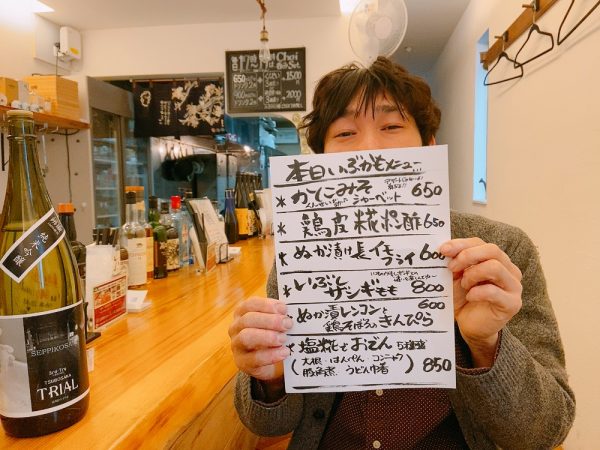 純米吟醸
SEPPIKOSAN
TRIAL
650
1500
2000
本日いぶかもメニュー
かんこみそ シャーベット 650
鶏皮糀ポン酢 650
ぬか漬け長イモフライ 600
いぶしサンギもも 800
ぬか漬レンコンと 600
鶏そぼろのきんぴら
塩糀とおでん 5種盛
(大根・はんぺん コンニャク
豚角煮、うどん巾着) 850